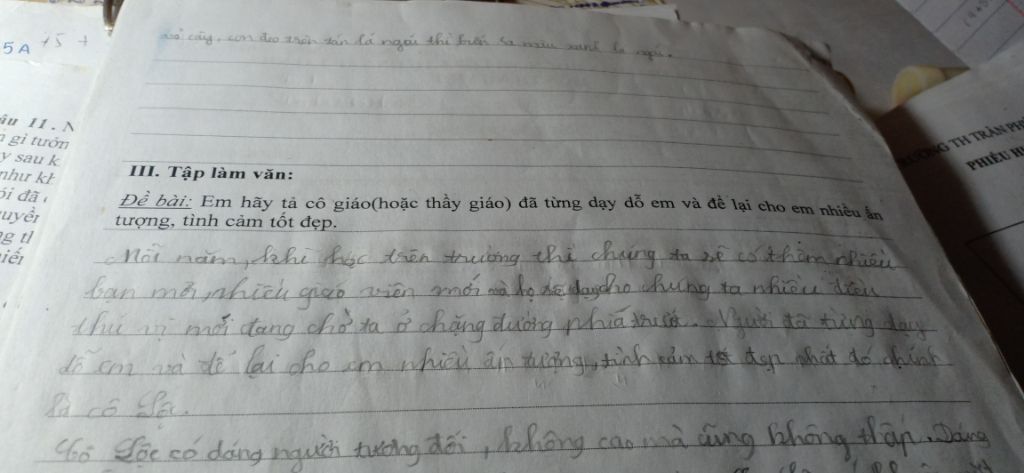 5A +5 +
vỏ cây, con đeo trên tán lá ngái thì biến ra màu xanh lá ngái.
âu 11. N
gì tưởn
y sau k
như kh
ói đã
uyển
g tl
iến
ƯỜNG TH TRẦN PH
PHIẾU H
III. Tập làm văn:
Đề bài: Em hãy tả cô giáo(hoặc thầy giáo) đã từng dạy dỗ em và để lại cho em nhiều ấn
tượng, tình cảm tốt đẹp.
Mỗi năm, khi học trên trường thì chúng ta sẽ có thêm nhiều
bạn mới, nhiều giáo viên mới và họ sẽ dạy cho chúng ta nhiều điều
thú vị mới đang chờ ta ở chặng đường phía trước. Người đã từng dạy
dỗ em và để lại cho em nhiều ấn tượng, tình cảm tốt đẹp nhất đó chính
là cô Lộc.
Cô Lộc có dáng người tương đối, không cao mà cũng không thấp. Dáng